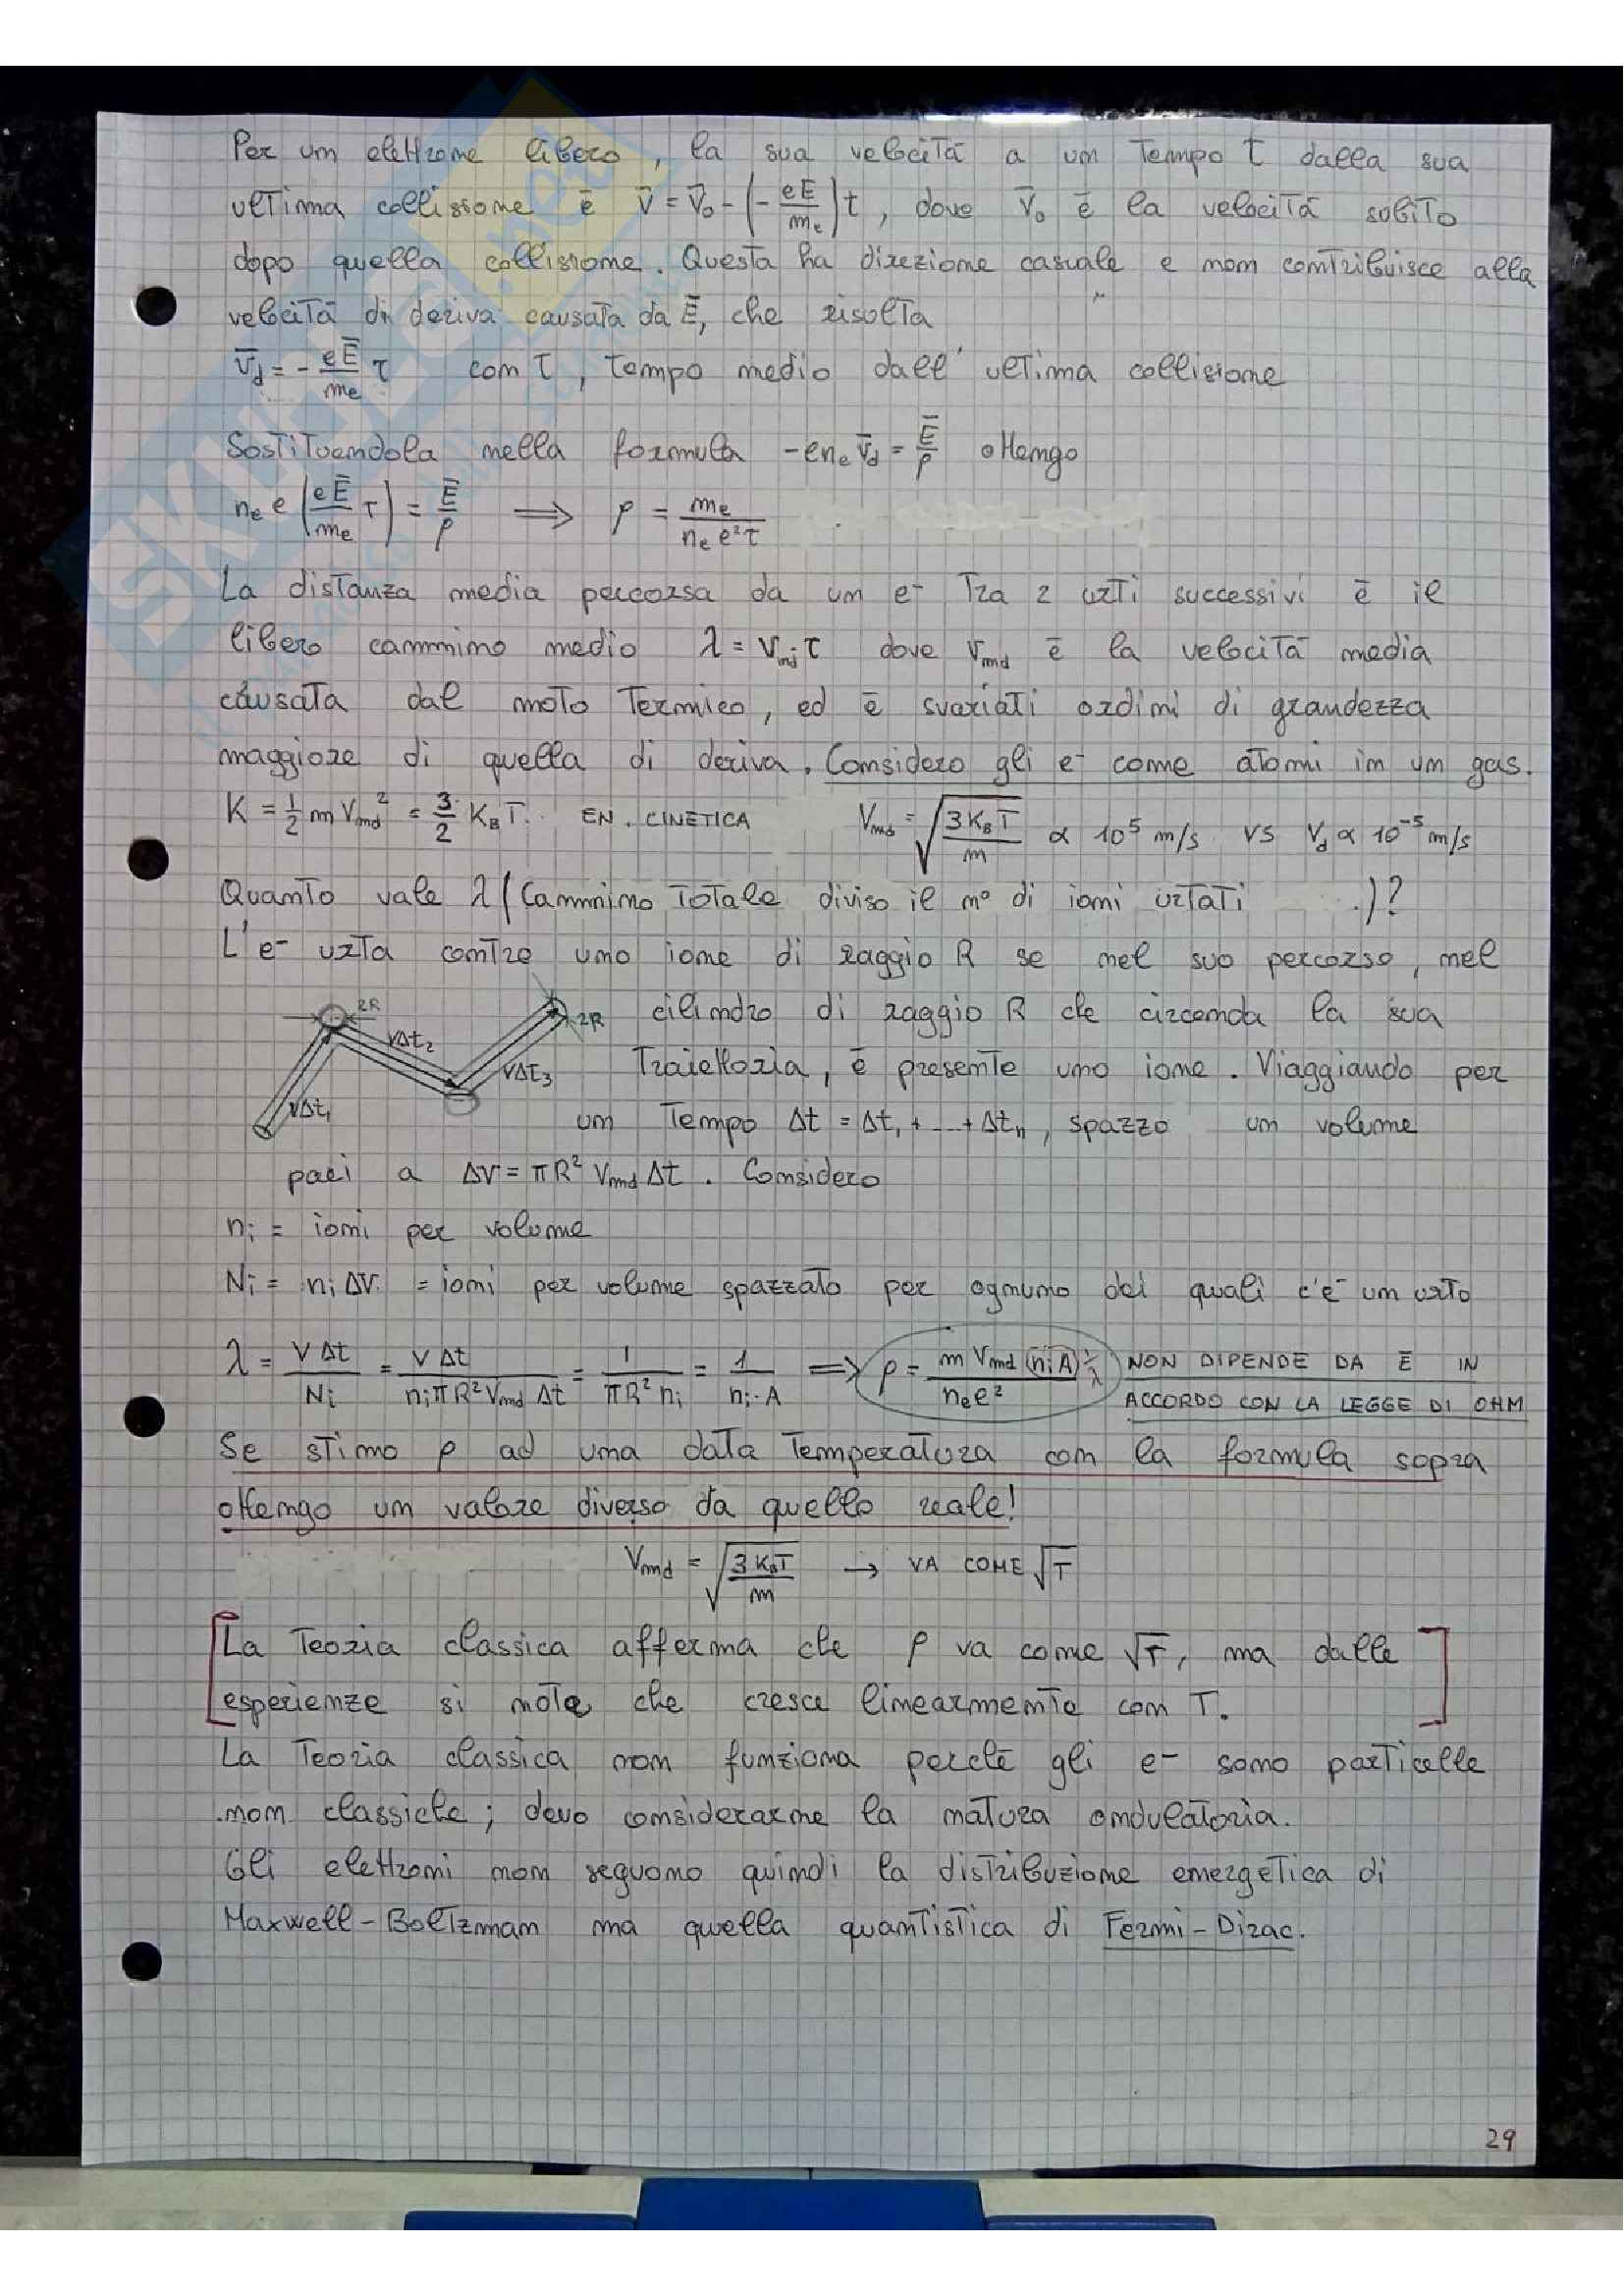 Per un elettrone libero, la sua velocità a un tempo t dalla sua
ultima collissione è v̄ = v̄₀ - (- eĒ/mₑ)t, dove v̄₀ è la velocità subito
dopo quella collisione. Questa ha direzione casuale e non contribuisce alla
velocità di deriva causata da Ē, che risolta
v̄d = - eĒ/mₑ τ con τ, tempo medio dall'ultima collisione
Sostituendola nella formula -enₑ v̄d = Ē/ρ ottengo
nₑ e (eĒ/mₑ τ) = Ē/ρ ⟹ ρ = mₑ/nₑ e²τ
La distanza media percorsa da un e⁻ tra 2 urti successivi è il
libero cammino medio λ = Vmd·τ dove Vmd è la velocità media
causata dal moto termico, ed è svariati ordini di grandezza
maggiore di quella di deriva. Considero gli e⁻ come atomi in un gas.
K = 1/2 m Vmd² = 3/2 K_B T. EN. CINETICA Vmd = √(3K_B T/m) ∝ 10⁵ m/s vs Vd ∝ 10⁻⁵ m/s
Quanto vale λ (Cammino totale diviso il n° di ioni urtati .)?
L'e⁻ urta contro uno ione di raggio R se nel suo percorso, nel
2R
2R
vΔt₁
vΔt₂
vΔt₃
cilindro di raggio R che circonda la sua
traiettoria, è presente uno ione. Viaggiando per
un tempo Δt = Δt₁ + ... + Δtₙ, spazzo un volume
pari a ΔV = πR² Vmd Δt. Considero
nᵢ = ioni per volume
Nᵢ = nᵢ ΔV. = ioni per volume spazzato per ognuno dei quali c'è un urto
λ = VΔt/Nᵢ = VΔt/nᵢπR²VmdΔt = 1/πR²nᵢ = 1/nᵢ·A ⟹ ρ = m Vmd (nᵢA)/nₑe² 1/λ NON DIPENDE DA Ē IN
ACCORDO CON LA LEGGE DI OHM
Se stimo ρ ad una data temperatura con la formula sopra
ottengo un valore diverso da quello reale!
Vmd = √(3K_BT/m) → VA COME √T
[La teoria classica afferma che ρ va come √T, ma dalle
esperienze si nota che cresce linearmente con T.]
La teoria classica non funziona perché gli e⁻ sono particelle
non classiche; devo considerarne la natura ondulatoria.
Gli elettroni non seguono quindi la distribuzione energetica di
Maxwell-Boltzman ma quella quantistica di Fermi-Dirac.
29